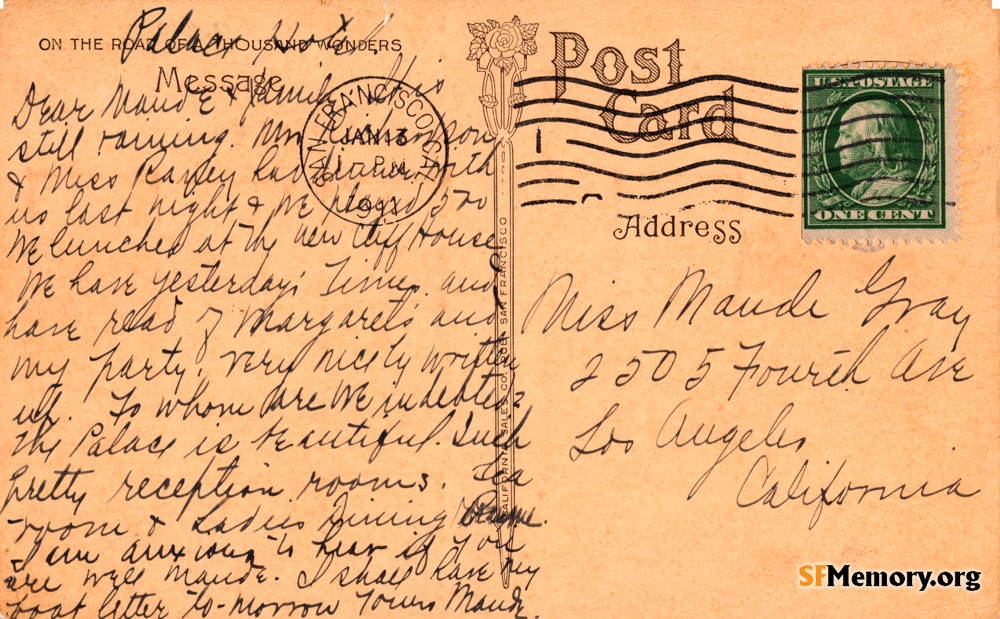 Palace Hotel.
ON THE ROAD OF A THOUSAND WONDERS
Message
Dear Maude & Family. It is
still raining. Mr.
& Miss had dinner with
us last night & we played 500
We lunched at the new Cliff House
We have yesterday's Times. and
have read of Margaret's and
my party. Very nicely written
up. To whom are we indebted?
The Palace is beautiful. Such
pretty reception rooms. Tea
room & Ladies Dining
I am anxious to hear if you
are well Maude. I shall have my
boat letter to-morrow Yours Maude.
SAN FRANCISCO, CAL.
JAN 13
PM
1911
CALIFORNIA SALES CO. SAN FRANCISCO
Post
Card
U.S. POSTAGE
ONE CENT
Address
Miss Maude Gray
2505 Fourth Ave
Los Angeles
California
SFMemory.org